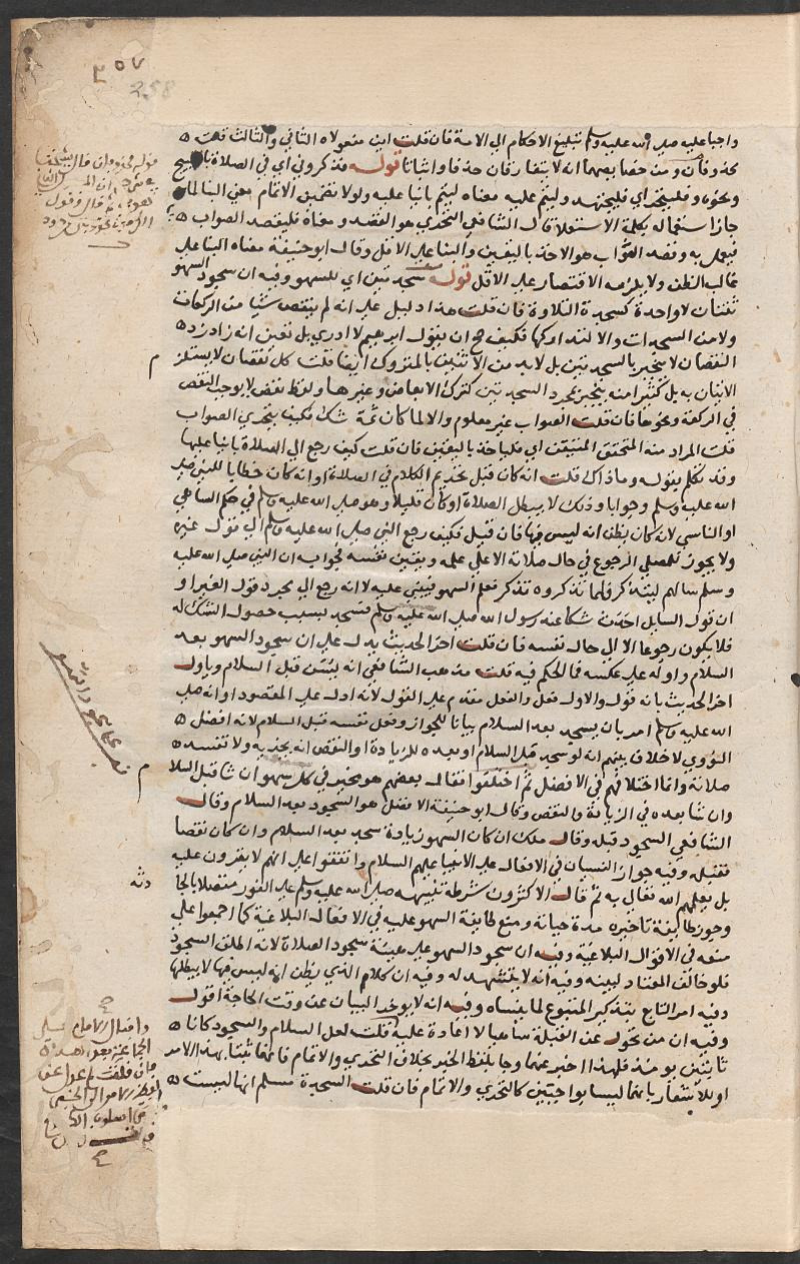 ٣٥٧
258
واجبا عليه صلى الله عليه وسلم تبليغ الاحكام الي الامة فان قلت اين مفعولاه الثاني والثالث قلت
محذوفان ومن خصايصهما انه لا يتفارقان حذفا واثباتا قوله فذكروني اي في الصلاة بالتسبيح
ونحوه وفليتحر اي فليجتهد وليتم عليه معناه ليتم بانيا عليه ولولا تضمين الاتمام معني البنا لما
جاز استعماله بكلمة الاستعلا قال الشافعي التحري هو القصد ومعناه فليقصد الصواب
فيعمل به وقصد الصواب هو الاخذ باليقين والبنا على الاقل وقال ابو حنيفة معناه البنا علي
غالب الظن ولا يلزمه الاقتصار علي الاقل قوله سجدتين اي للسهو وفيه ان سجود السهو
ثنتان لا واحدة كسجدة التلاوة فان قلت هذا دليل علي انه لم ينقص شيا من الركعات
ولا من السجدات والا لتداركها فكيف صح ان يقول ابرهيم لا ادري بل تعين انه زاد اذ
النقصان لا ينجبر بالسجدتين بل لا بد من الاتيان بالمتروك ايضا قلت كل نقصان لا يستلزم
الاتيان به بل كثيرا منه ينجبر بمجرد السجدتين كترك الابعاض وغيرها ولفظ نقص لا يوجب النقص
في الركعة ونحوها فان قلت الصواب غير معلوم والا لما كان ثمة شك فكيف يتحري الصواب
قلت المراد منه المتحقق المتيقن اي فلياخذ باليقين فان قلت كيف رجع الي الصلاة بانيا عليها
وقد تكلم بقوله وما ذاك قلت انه كان قبل تحريم الكلام في الصلاة او انه كان خطابا للنبي صلى
الله عليه وسلم وجوابا وذلك لا يبطل الصلاة او كان قليلا وهو صلى الله عليه وسلم في حكم الساهي
او الناسي لانه كان يظن انه ليس فيها فان قيل فكيف رجع النبي صلى الله عليه وسلم الي قول غيره
ولا يجوز للمصلي الرجوع في حال صلاته الا علي علمه ويقين نفسه فجوابه ان النبي صلى الله عليه
وسلم سالهم ليتذكر فلما تذكروه تذكر فعلم السهو فبني عليه لا انه رجع الي مجرد قول الغير او
ان قول السايل احدث شكا عند رسول الله صلى الله عليه وسلم فسجد بسبب حصول الشك له
فلا يكون رجوعا الا الي حال نفسه فان قلت اخر الحديث يدل علي ان سجود السهو بعد
السلام واوله علي عكسه فما الحكم فيه قلت مذهب الشافعي انه يسن قبل السلام وياول
اخر الحديث بانه قول والاول فعل والفعل مقدم علي القول لانه ادل علي المقصود او انه صلى
الله عليه وسلم امر بان يسجد بعد السلام بيانا للجواز وفعل نفسه قبل السلام لانه افضل
النووي لا خلاف بينهم انه لو سجد قبل السلام او بعده للزيادة او النقص انه يجزيه ولا تفسد
صلاته وانما اختلافهم في الافضل ثم اختلفوا فقال بعضهم هو مخير في كل سهو ان شا قبل السلا
وان شا بعده في الزيادة والنقص وقال ابو حنيفة الافضل هو السجود بعد السلام وقال
الشافعي السجود قبله وقال ملك ان كان السهو زيادة سجد بعد السلام وان كان نقصا
فقبله وفيه جواز النسيان في الافعال علي الانبيا عليهم السلام واتفقوا علي انهم لا يقرون عليه
بل يعلمهم الله تعالي به ثم قال الاكثرون شرطه تنبيهه صلى الله عليه وسلم علي الفور متصلا بالحا
دثة
وجوز طايفة تاخيره مدة حياته ومنع طايفة السهو عليه في الافعال البلاغية كما اجمعوا علي
منعه في الاقوال البلاغية وفيه ان سجود السهو علي هيئة سجود الصلاة لانه اطلق السجود
فلو خالف المعتاد لبينه وفيه انه لا يتشهد له وفيه ان كلام الذي يظن انه ليس فيها لا يبطلها
وفيه امر التابع بتذكير المتبوع لما ينساه وفيه انه لا يوخر البيان عن وقت الحاجة اقول
وفيه ان من تحول عن القبلة ساهيا لا اعادة عليه قلت لعل السلام والسجود كانا
ثابتين يومئذ فلهذا اخبر عنهما وجا بلفظ الخبر بخلاف التحري والاتمام فانهما ثبتا بهذا الامر
او للاشعار بانهما ليسا بواجبين كالتحري والاتمام فان قلت السجدة مسلم انها ليست